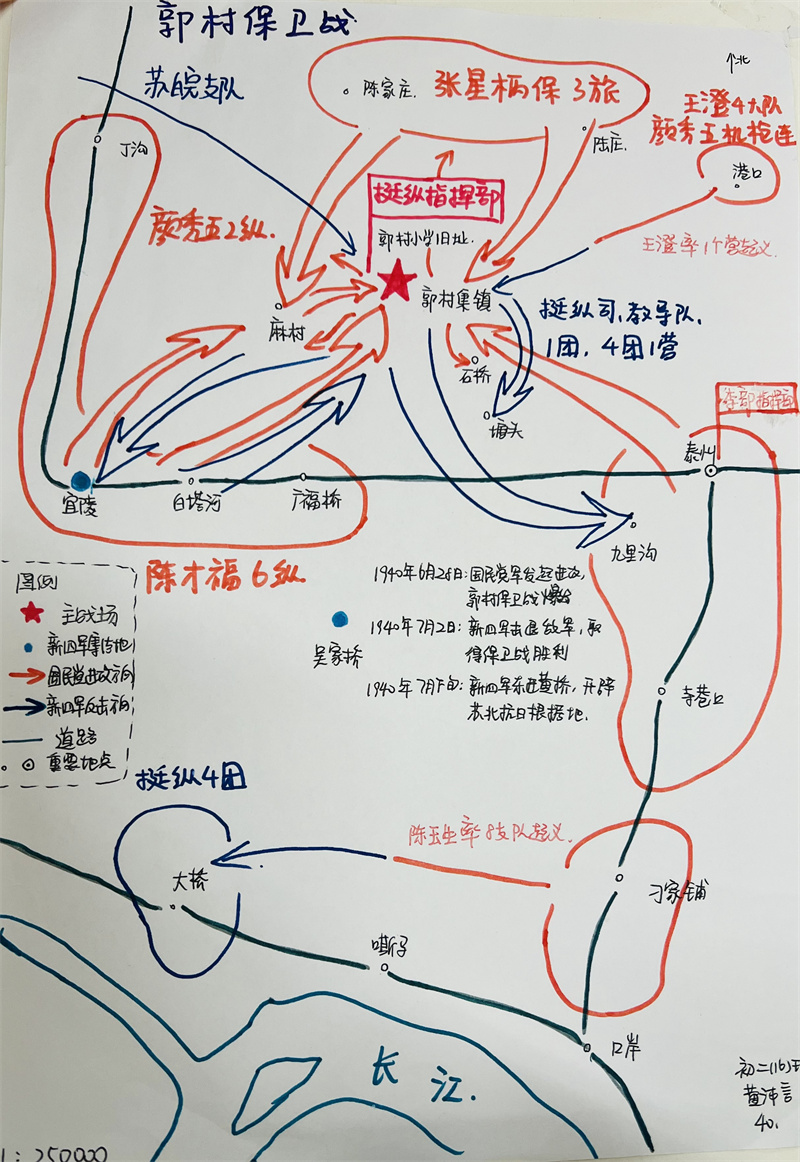 郭村保卫战
苏皖支队
个北
陈家庄.
张星柄保3旅
陆庄.
王澄4大队
颜秀五机枪连
港口
丁沟
挺纵指挥部
颜秀五2纵.
郭村小学旧址.
王澄率1个营起义.
郭村集镇
麻村
挺纵司,教导队,
1团,4团1营
石桥
塘头
李部指挥部
泰州
宜陵
白塔河
广福桥
九里沟
陈才福6纵
图例
主战场
新四军集结地
国民党进攻方向
新四军反击方向
道路
重要地点
吴家桥
1940年6月28日:国民党军发起进攻,
郭村保卫战爆发
1940年7月2日:新四军击退敌军,取
得保卫战胜利
1940年7月下旬:新四军东进黄桥,开辟
苏北抗日根据地.
寺巷口
挺纵4团
陈玉生率8支队起义.
大桥
刁家铺
嘶子
口岸
长江.
初二(16)班
黄沛言
40.
1:250000